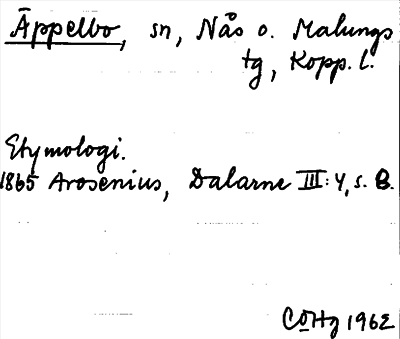 Äppelbo, sn, Nås o. Malungs
tg, Kopp. l.
Etymologi.
1865 Arosenius, Dalarne III: 4, s. B.
COHg 1962